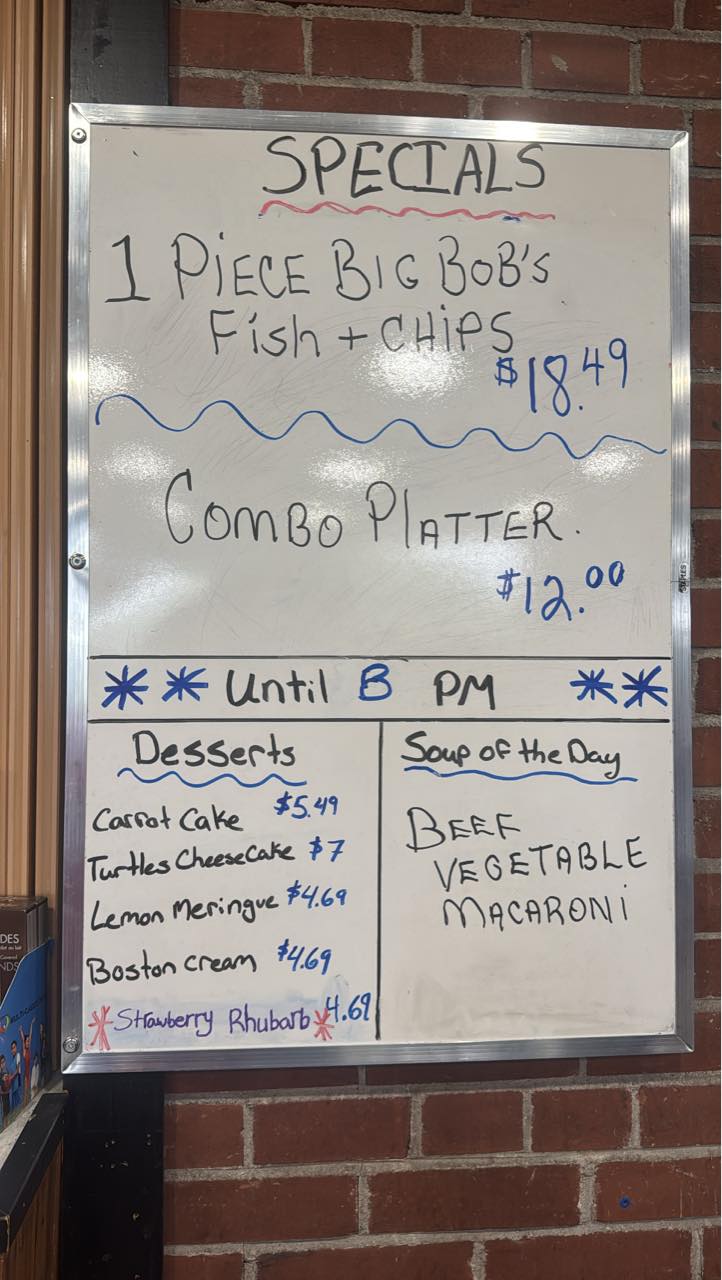 SPECIALS
1 PiECE BIG BOB'S
Fish + CHiPS
$18.49
COMBO PlATTER.
$12.00
** Until 8 PM **
Desserts
Carrot Cake $5.49
Turtles CheeseCake $7
Lemon Meringue $4.69
Boston cream $4.69
*Strawberry Rhubarb* 4.69
Soup of the Day
BEEF
VEGETABLE
MACARONi
DES
NDS